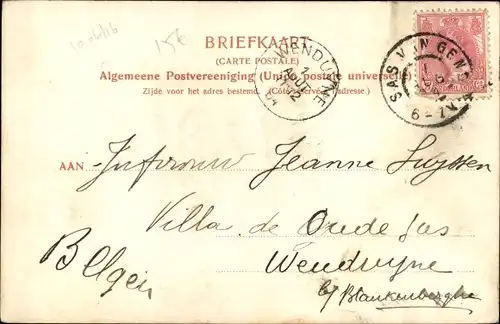 15€
BRIEFKAART
(CARTE POSTALE)
Algemeene Postvereeniging (Union postale universelle)
Zijde voor het adres bestemd. (Côté réservé à l'adresse.)
WENDUYNE
SAS VAN GENT
6-7V
AAN Jufvrouw Jeanne
Villa de Oude Sas
Wenduyne
b/ Blankenberghe
Belgen